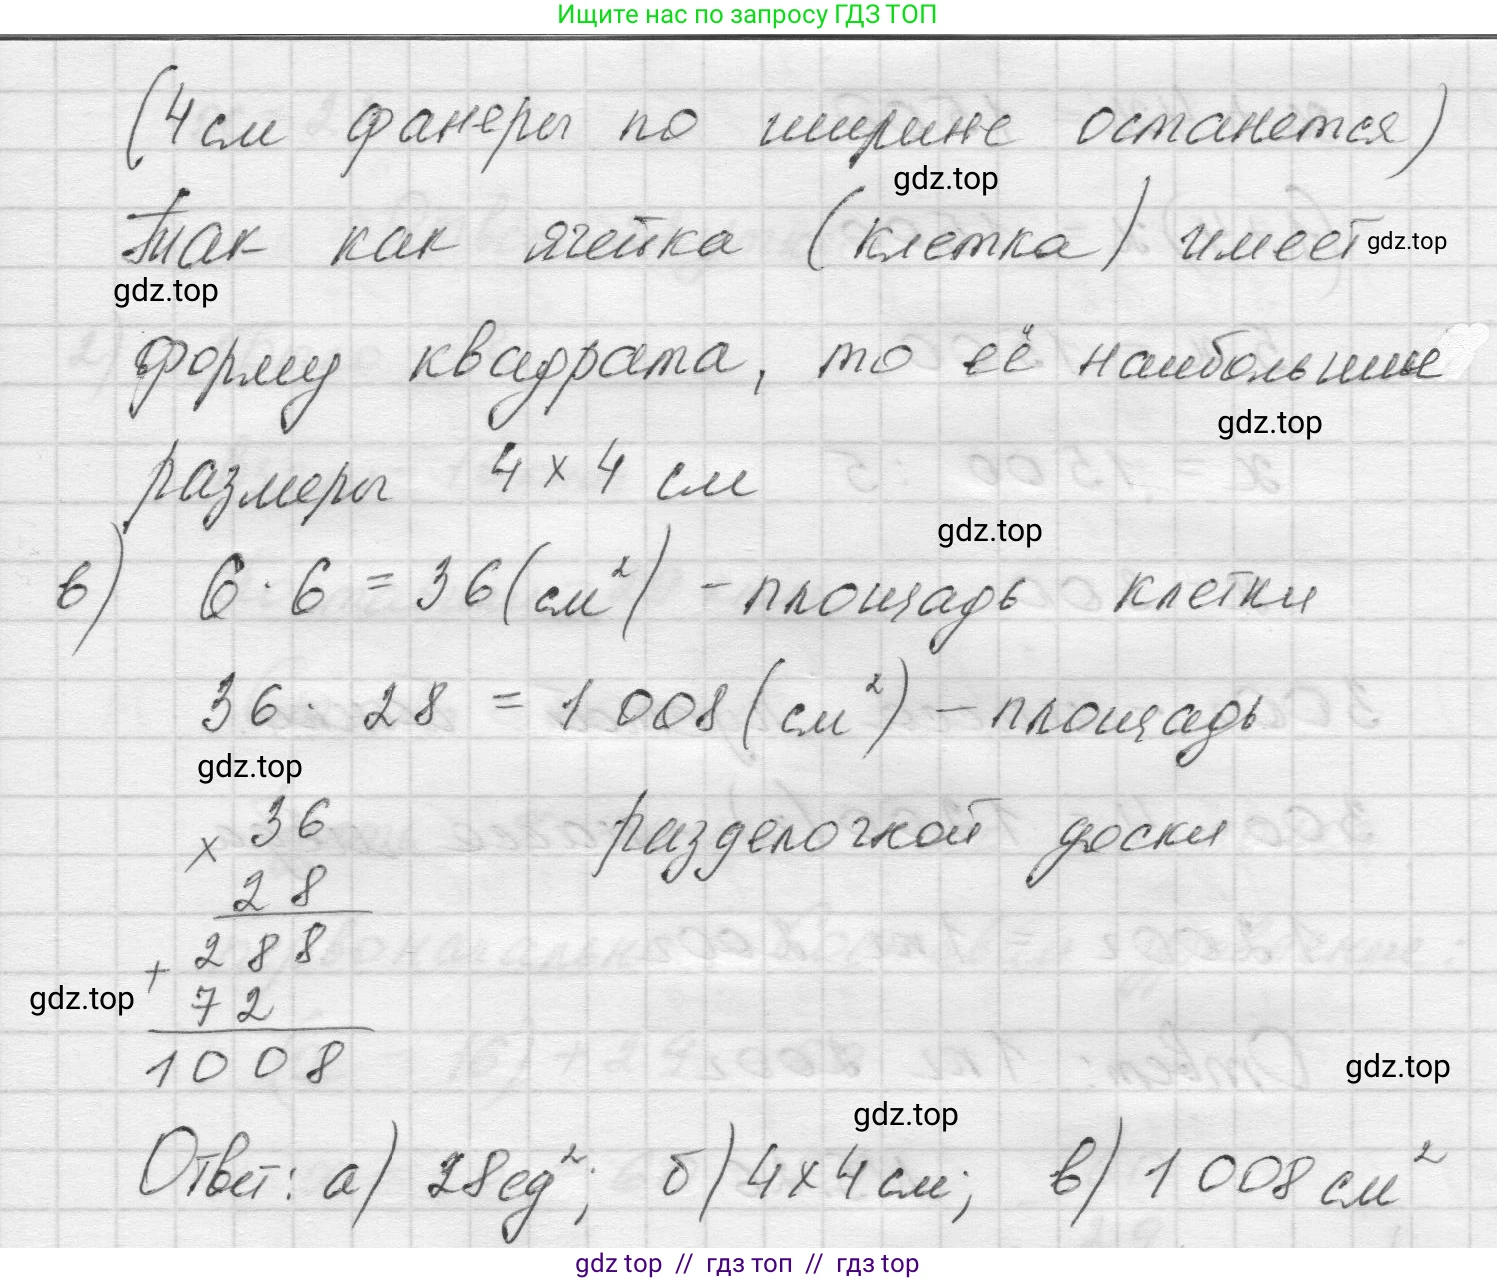 Ищите нас по запросу ГДЗ ТОП
(4 см фанеры по ширине останется)
gdz.top
Так как ячейка (клетка) имеет gdz.top
gdz.top
форму квадрата, то её наибольшие
gdz.top
размеры 4 × 4 см
gdz.top
в) 6 · 6 = 36 (см²) – площадь клетки
36 · 28 = 1 008 (см²) – площадь
gdz.top
разделочной доски
× 36
28
+ 288
gdz.top 72
1008
gdz.top
gdz.top
Ответ: а) 28 ед²; б) 4 × 4 см; в) 1 008 см²
gdz top // гдз топ // гдз top